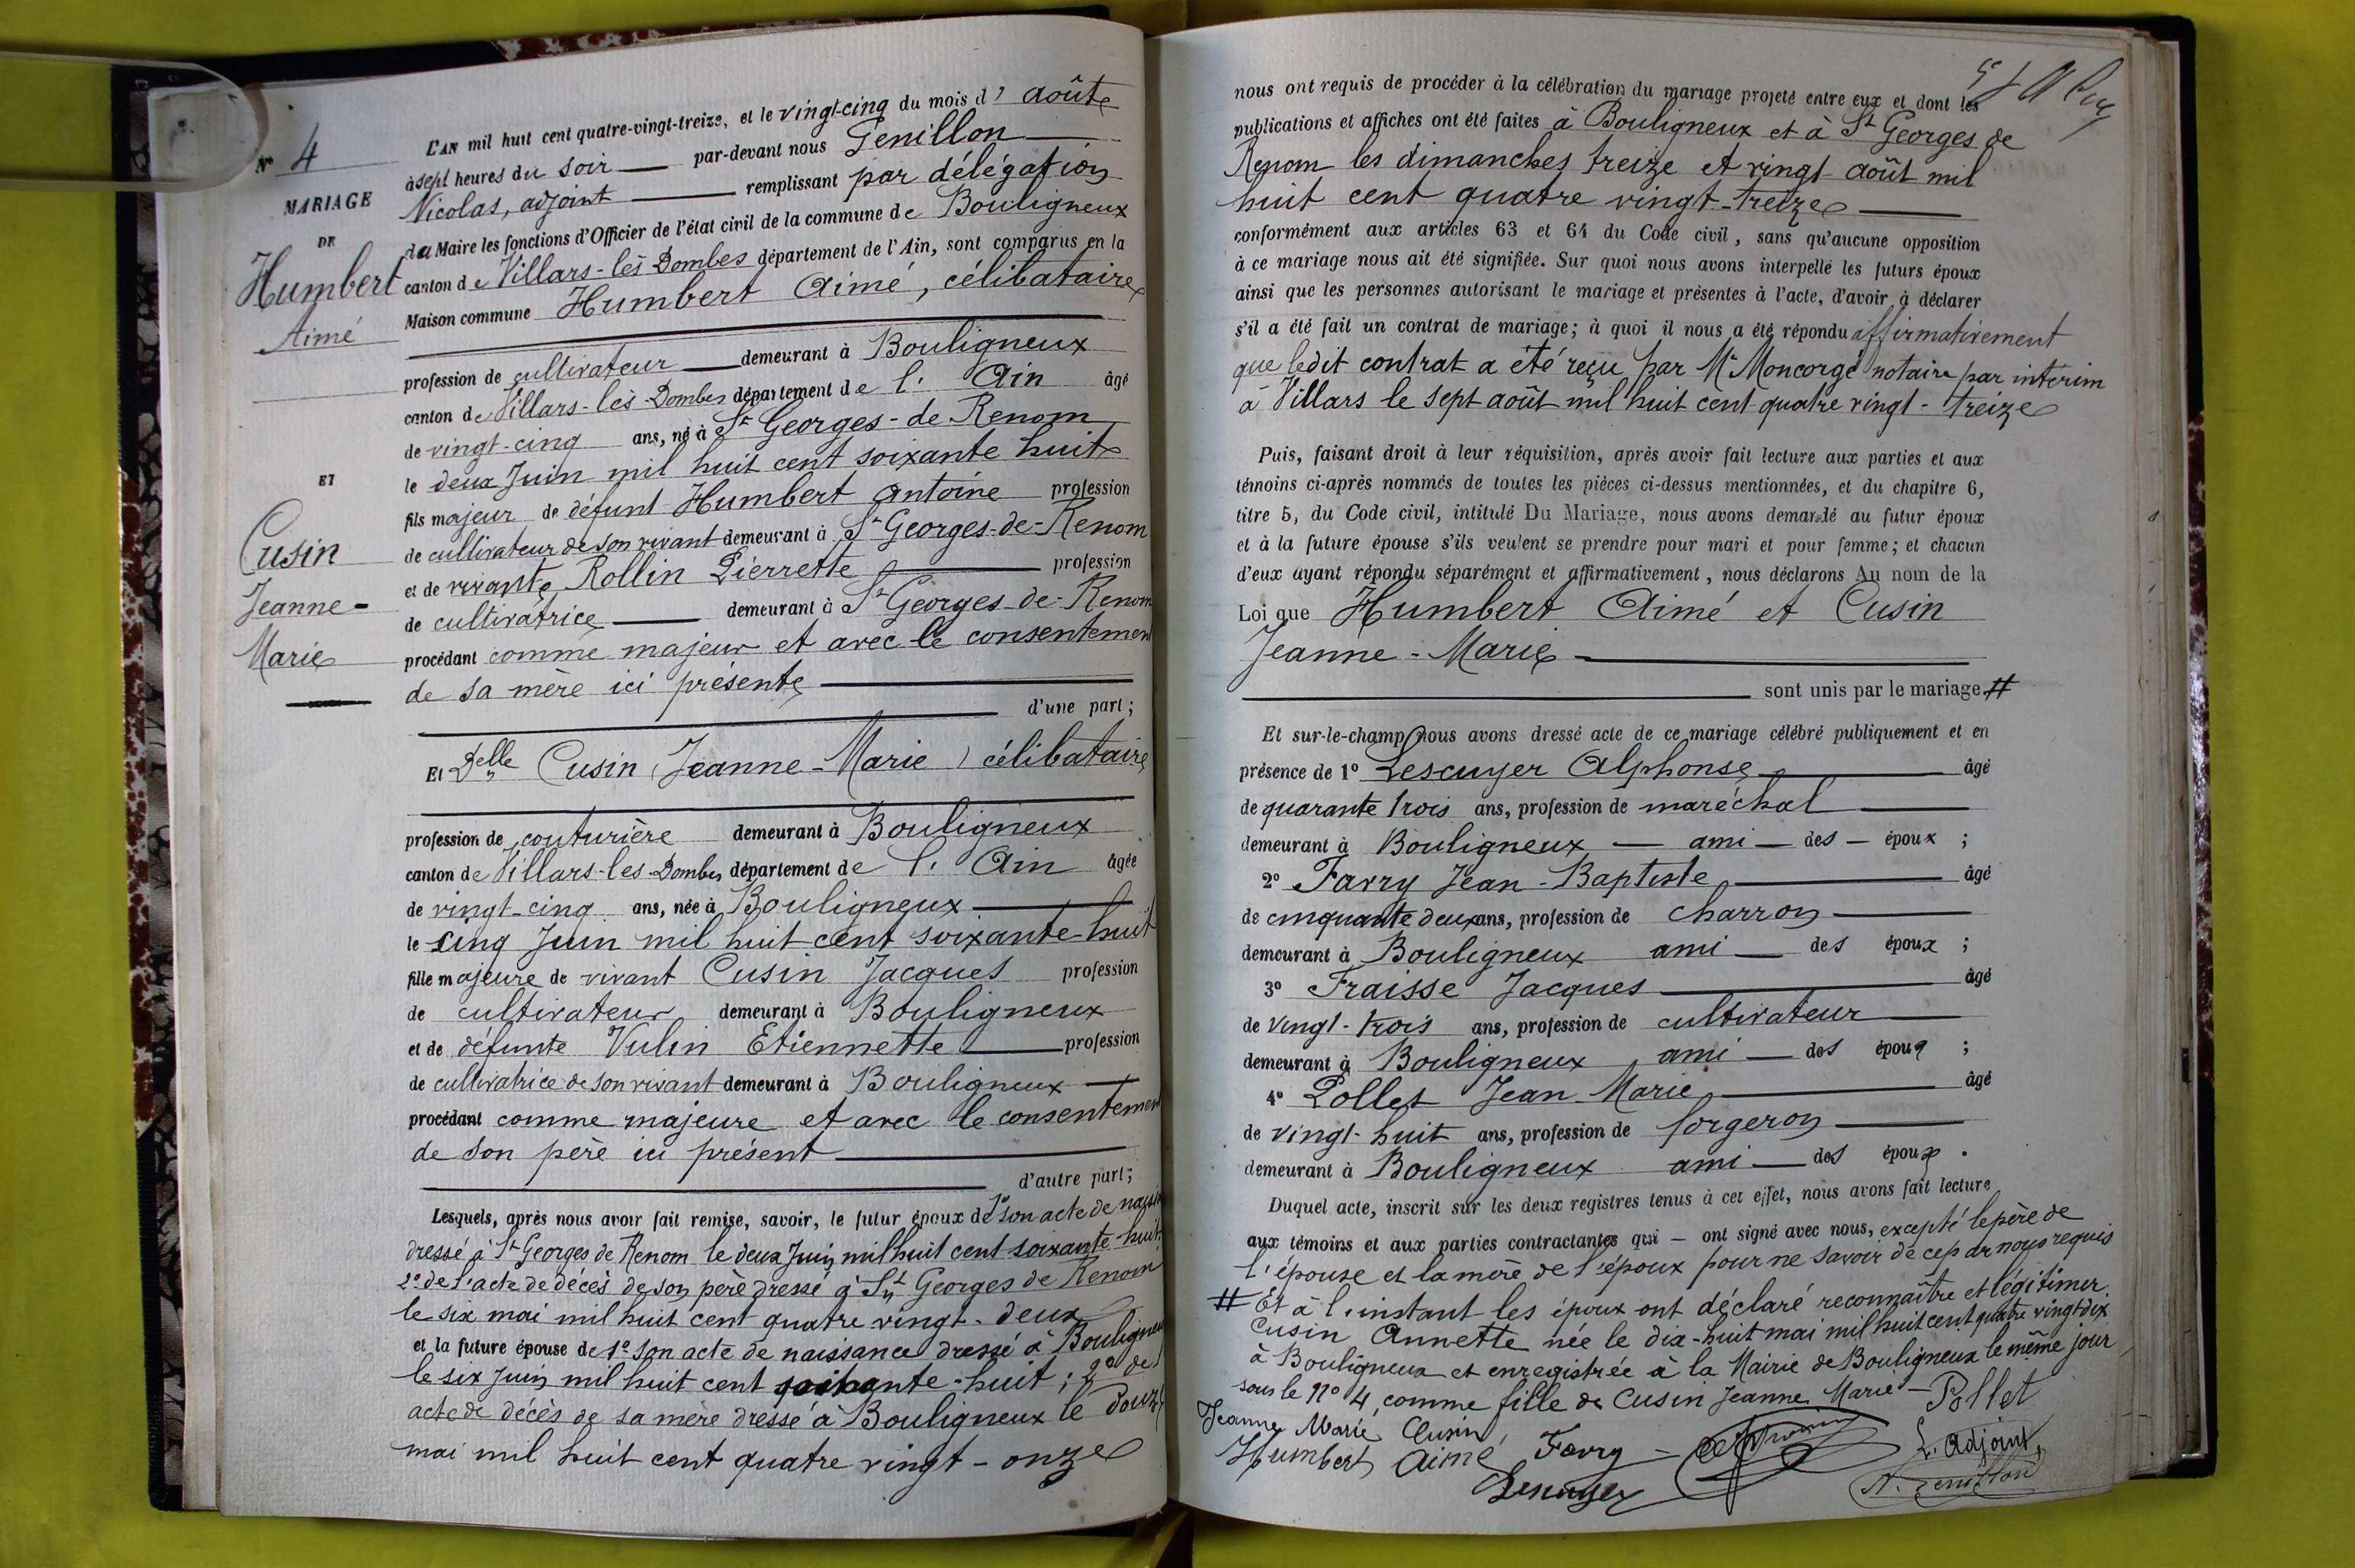 N° 4
MARIAGE
DE
Humbert
Aimé
ET
Cusin
Jeanne-
Marie
L'AN mil huit cent quatre-vingt-treize, et le vingt-cinq du mois d' août
à sept heures du soir — par-devant nous Genillon
Nicolas, adjoint — remplissant par délégation
du Maire les fonctions d'Officier de l'état civil de la commune de Bouligneux
canton de Villars-les-Dombes département de l'Ain, sont comparus en la
Maison commune Humbert Aimé, célibataire
profession de cultivateur — demeurant à Bouligneux
canton de Villars-les-Dombes département de l' Ain âgé
de vingt-cinq ans, né à St Georges-de-Renom
le deux Juin mil huit cent soixante huit
fils majeur de défunt Humbert Antoine profession
de cultivateur de son vivant demeurant à St Georges-de-Renom
et de vivante Rollin Pierrette — profession
de cultivatrice — demeurant à St Georges-de-Renom
procédant comme majeur et avec le consentement
de sa mère ici présente
d'une part ;
Et Delle Cusin Jeanne-Marie, célibataire
profession de couturière demeurant à Bouligneux
canton de Villars-les-Dombes département de l' Ain âgée
de vingt-cinq ans, née à Bouligneux —
le cinq Juin mil huit cent soixante-huit
fille majeure de vivant Cusin Jacques profession
de cultivateur demeurant à Bouligneux
et de défunte Vulin Etiennette — profession
de cultivatrice de son vivant demeurant à Bouligneux —
procédant comme majeure et avec le consentement
de son père ici présent —
d'autre part ;
Lesquels, après nous avoir fait remise, savoir, le futur époux de 1° son acte de naiss
dressé à St Georges de Renom le deux Juin mil huit cent soixante-huit;
2° de l'acte de décès de son père dressé à St Georges de Renom
le six mai mil huit cent quatre vingt-deux
et la future épouse de 1° son acte de naissance dressé à Bouligneux
le six Juin mil huit cent soixante-huit ; 2° de l'
acte de décès de sa mère dressé à Bouligneux le douze
mai mil huit cent quatre vingt-onze
nous ont requis de procéder à la célébration du mariage projeté entre eux et dont les
publications et affiches ont été faites à Bouligneux et à St Georges de
Renom les dimanches treize et vingt août mil
huit cent quatre vingt-treize —
conformément aux articles 63 et 64 du Code civil, sans qu'aucune opposition
à ce mariage nous ait été signifiée. Sur quoi nous avons interpellé les futurs époux
ainsi que les personnes autorisant le mariage et présentes à l'acte, d'avoir à déclarer
s'il a été fait un contrat de mariage ; à quoi il nous a été répondu affirmativement
que ledit contrat a été reçu par Me Moncorgé notaire par intérim
à Villars le sept août mil huit cent quatre vingt-treize
Puis, faisant droit à leur réquisition, après avoir fait lecture aux parties et aux
témoins ci-après nommés de toutes les pièces ci-dessus mentionnées, et du chapitre 6,
titre 5, du Code civil, intitulé Du Mariage, nous avons demandé au futur époux
et à la future épouse s'ils veulent se prendre pour mari et pour femme ; et chacun
d'eux ayant répondu séparément et affirmativement, nous déclarons Au nom de la
Loi que Humbert Aimé et Cusin
Jeanne-Marie —
sont unis par le mariage #
Et sur-le-champ nous avons dressé acte de ce mariage célébré publiquement et en
présence de 1° Lescuyer Alphonse — âgé
de quarante trois ans, profession de maréchal —
demeurant à Bouligneux — ami — des — époux ;
2° Farry Jean-Baptiste — âgé
de cinquante deux ans, profession de charron —
demeurant à Bouligneux ami — des époux ;
3° Fraisse Jacques — âgé
de vingt-trois ans, profession de cultivateur —
demeurant à Bouligneux ami — des époux ;
4° Pollet Jean Marie — âgé
de vingt-huit ans, profession de forgeron —
demeurant à Bouligneux ami — des époux .
Duquel acte, inscrit sur les deux registres tenus à cet effet, nous avons fait lecture
aux témoins et aux parties contractantes qui — ont signé avec nous, excepté le père de
l'épouse et la mère de l'époux pour ne savoir de ce par nous requis
# Et à l'instant les époux ont déclaré reconnaître et légitimer
Cusin Annette née le dix-huit mai mil huit cent quatre vingt dix
à Bouligneux et enregistrée à la Mairie de Bouligneux le même jour
sous le n° 4, comme fille de Cusin Jeanne Marie — Pollet
Jeanne Marie Cusin
Humbert Aimé Farry
L'Adjoint,
Lescuyer
N. Genillon